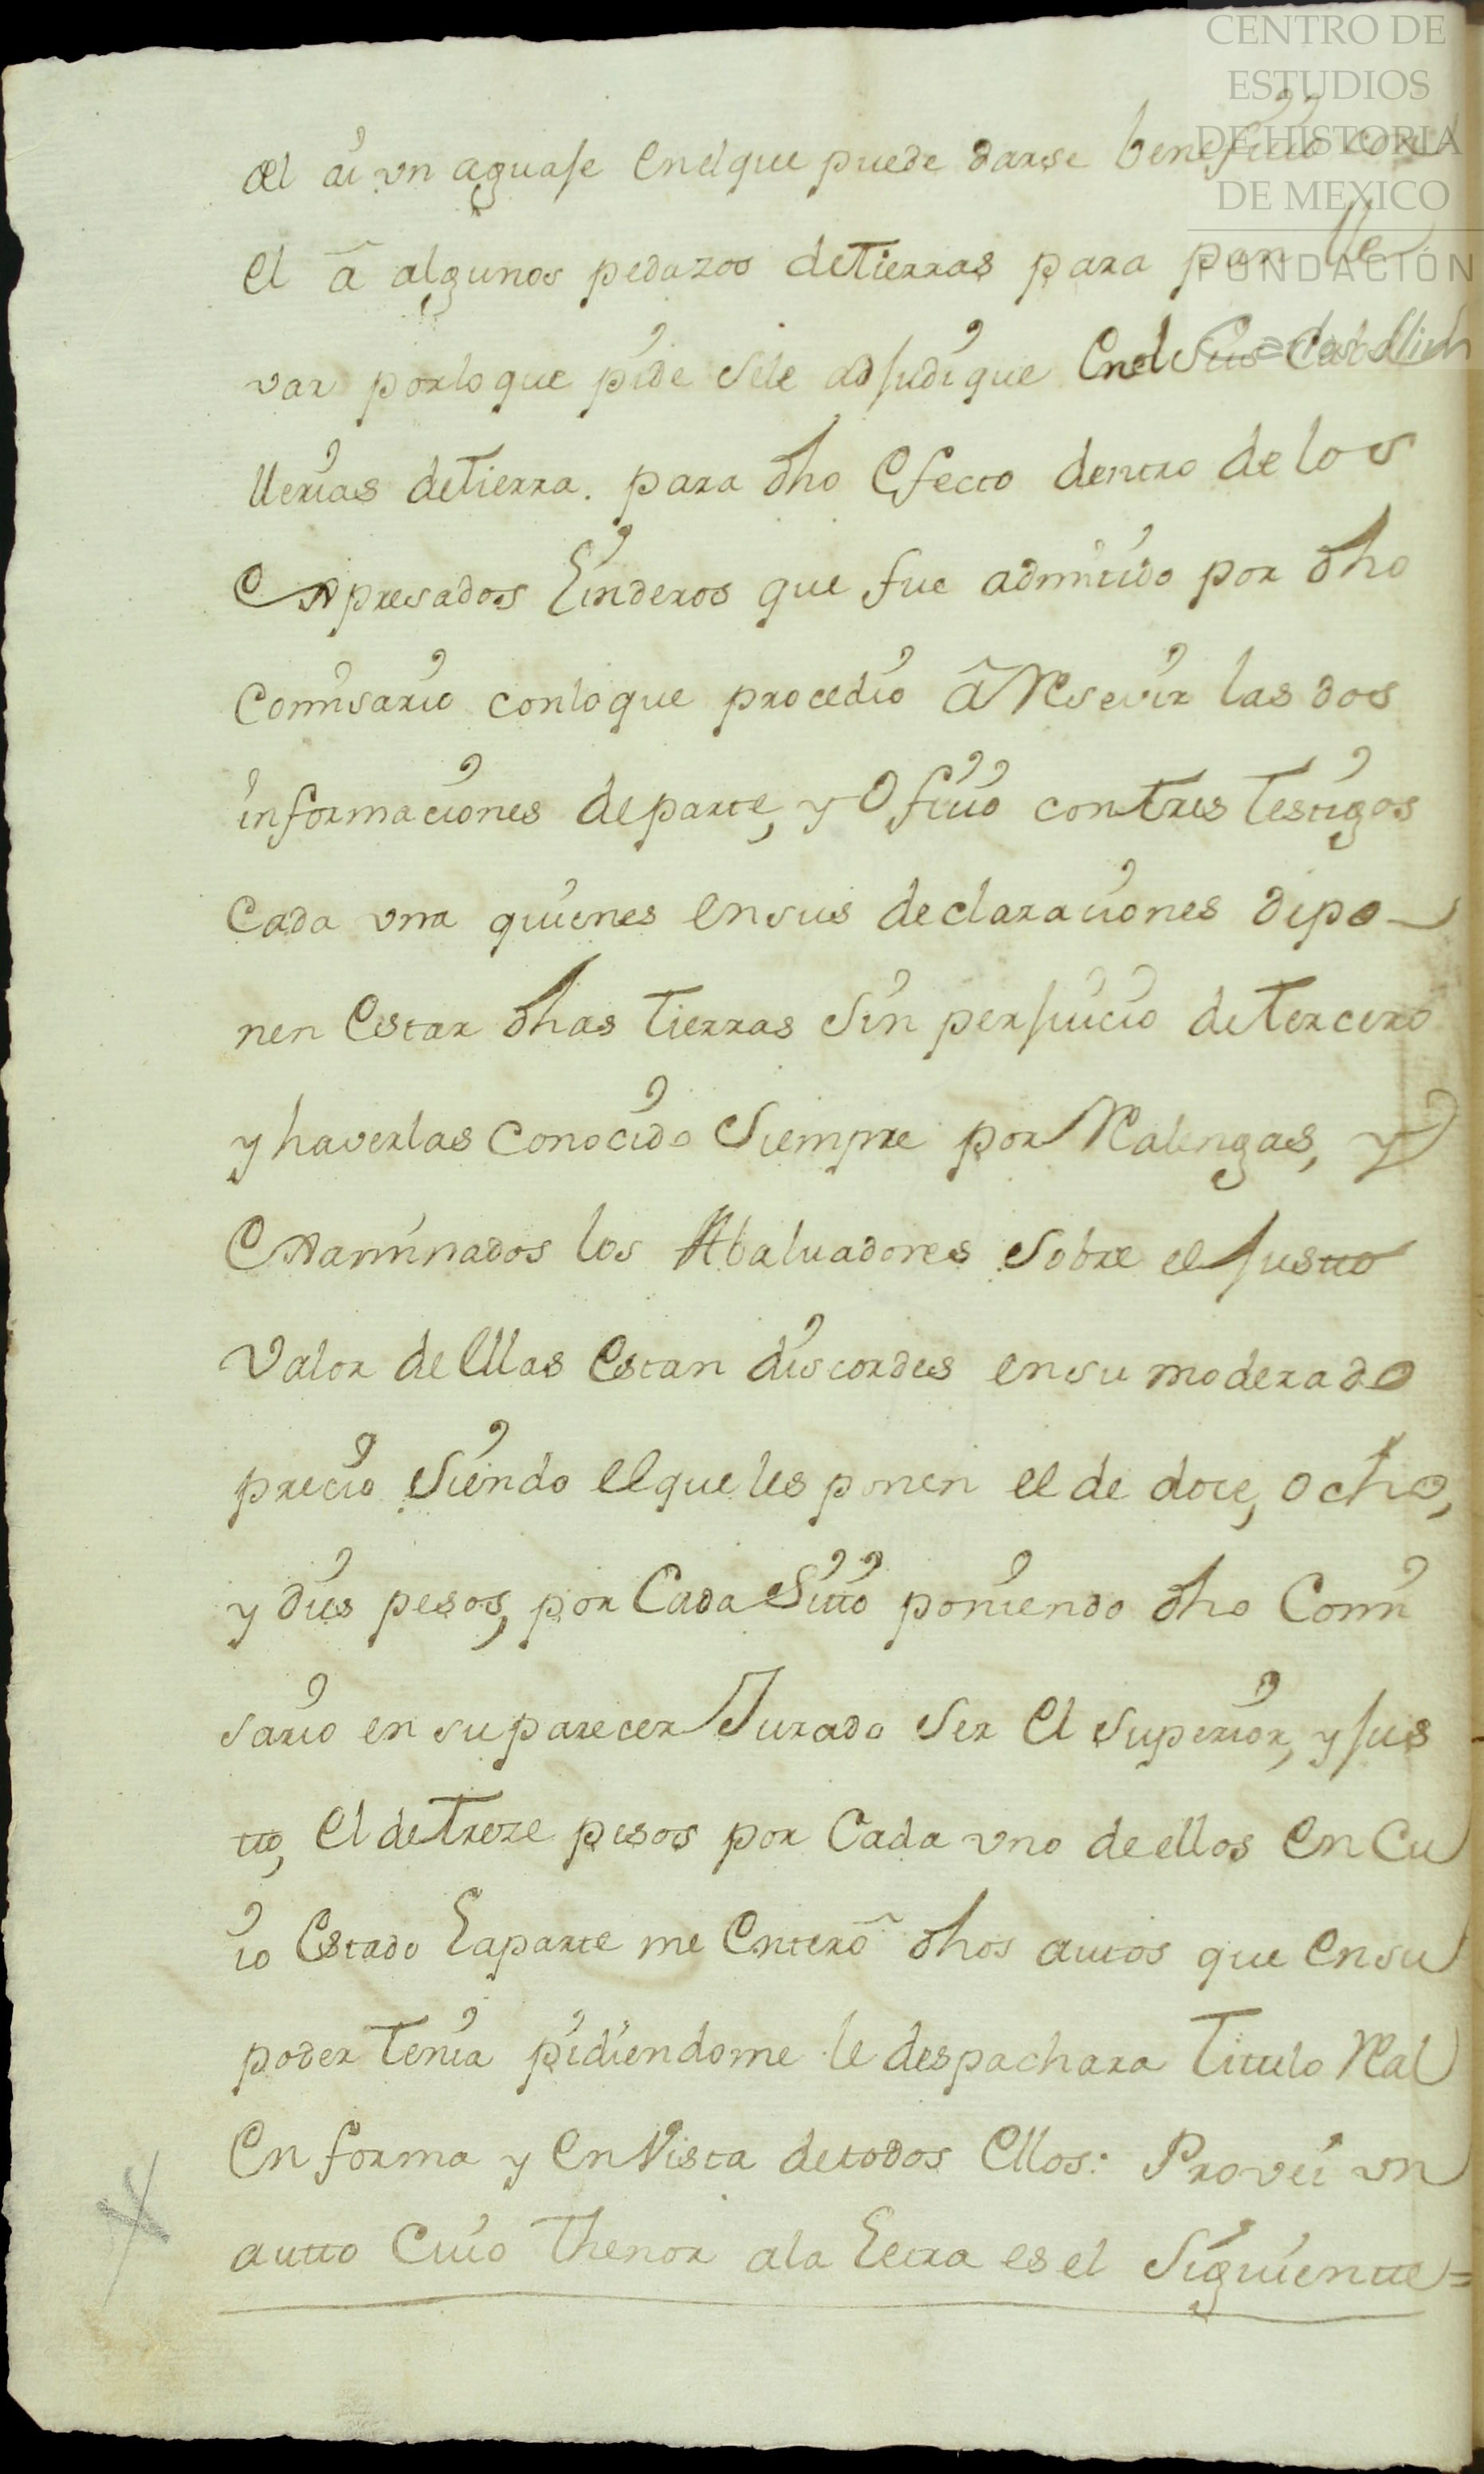 CENTRO DE
ESTUDIOS
DE HISTORIA
DE MEXICO
FUNDACIÓN
el ai vn aguaje en el que puede darse beneficio con
el â algunos pedazos de Tierras para pan lle
var por lo que pide sele adjudique en el seis Caballi
llerias de Tierra. para dho Efecto dentro de los
Expresados Linderos que fue admitido por dho
Comisario con lo que procedio â Resevir las dos
informaciones de parte, y Oficio con Tres Testigos
Cada vna quienes en sus declaraciones depo
nen Estar dhas Tierras Sin perjuicio de Tercero
y haverlas conocido Siempre por Realengas, y
Examinados los Abaluadores Sobre el justto
Valor de Ellas Estan discordes en su moderado
precio Siendo El que les ponen el de doce, ocho,
y dies pesos, por Cada Sittio poniendo dho Comi
sario en su parecer Jurado Ser El Superior, y jus
tto, El de Treze pesos por Cada vno de ellos En Cu
io Estado La parte me Enterô dhos autos que En su
poder Tenia pidiendome le despachara Titulo Real
En forma y En Vista de todos Ellos: Provei vn
autto Cuio Thenor a la Letra es el Siguientte=